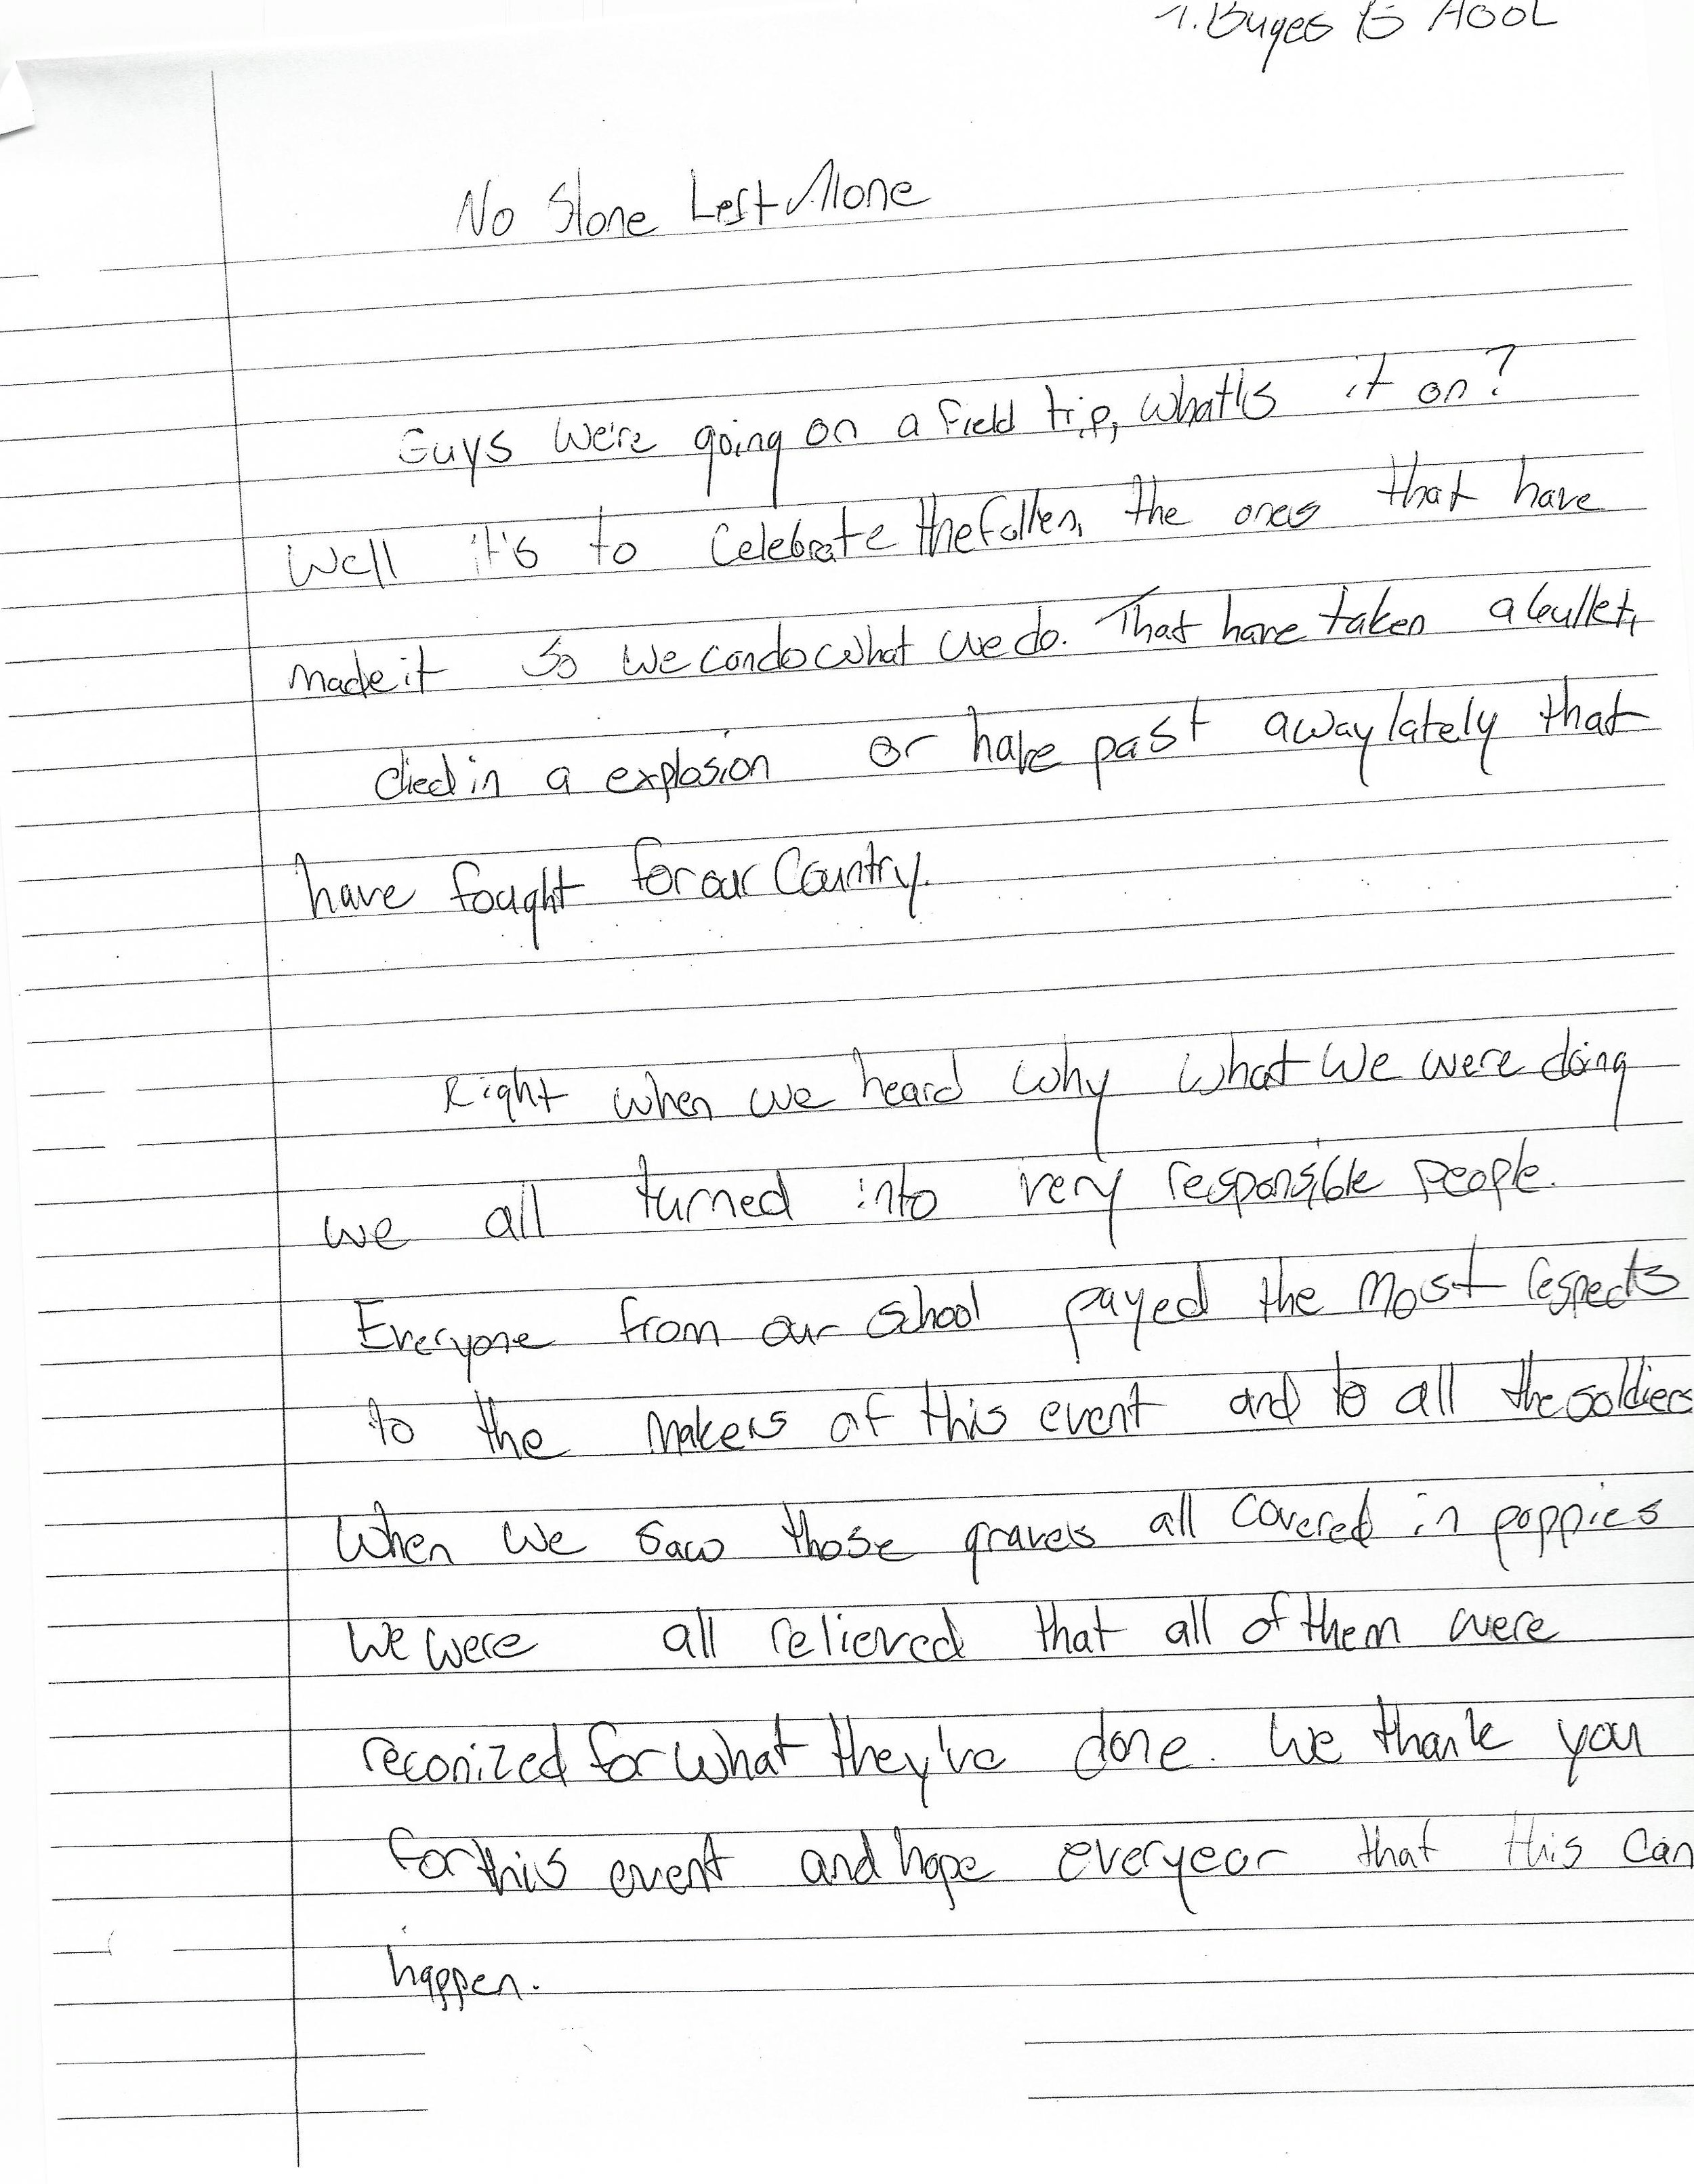 No Stone Left Alone
Guys We're going on a field trip, what's it on?
Well it's to Celebrate the fallen, the ones that have
made it so we can do what we do. That have taken a bullet,
died in a explosion or have past away lately that
have fought for our Country.
Right when we heard why what we were doing
we all turned into very responsible people.
Everyone from our school payed the most respects
to the makers of this event and to all the soldiers
When we saw those graves all covered in poppies
we were all relieved that all of them were
reconized for what they've done. We thank you
for this event and hope everyear that this can
happen.